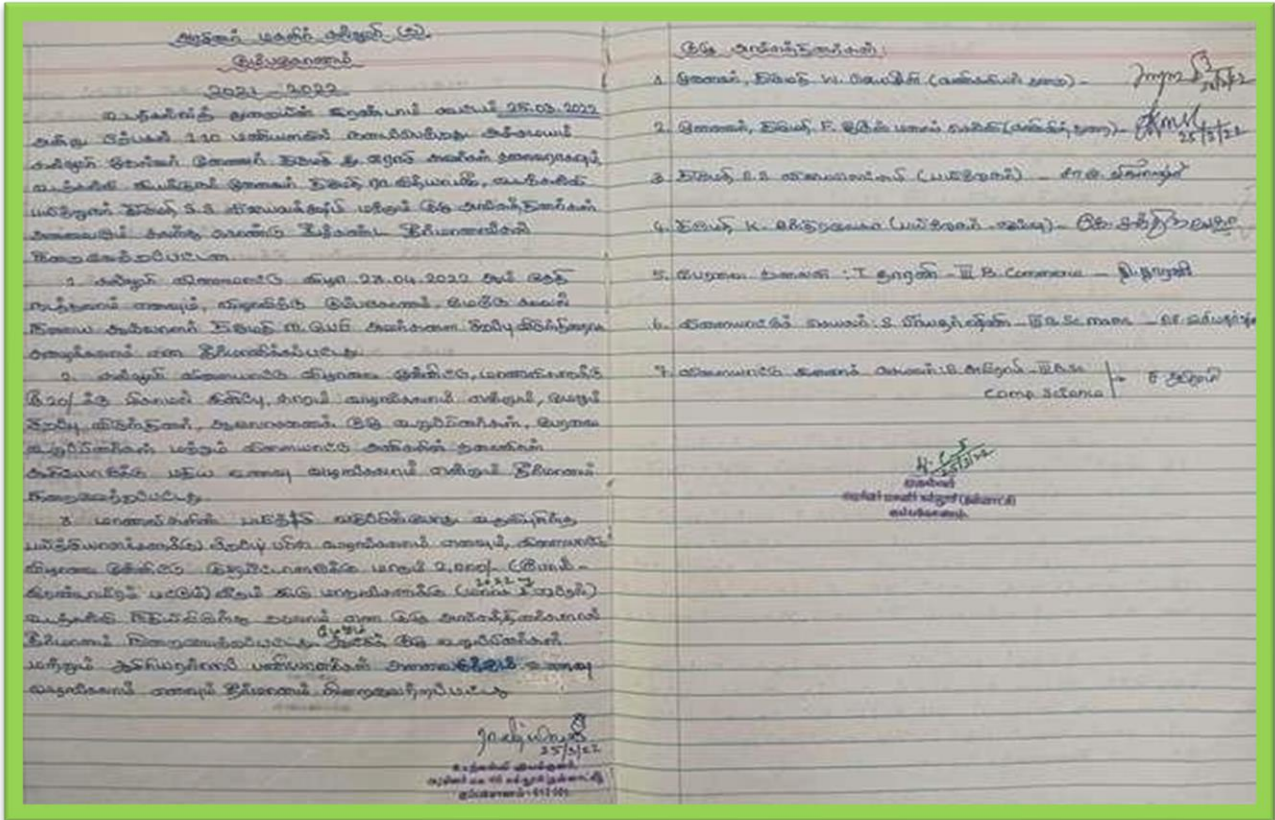 அரசினர் மகளிர் கல்லூரி (த),
கும்பகோணம்
2021 - 2022
உடற்கல்வித் துறையின் இரண்டாம் கூட்டம் 25.03.2022
அன்று பிற்பகல் 1.10 மணியளவில் நடைபெற்றது அச்சமயம்
கல்லூரி முதல்வர் முனைவர் திருமதி அவர்கள் தலைவராகவும்,
உடற்கல்வி இயக்குநர் முனைவர் திருமதி உடற்கல்வி
பயிற்றுநர் திருமதி S.S விஜயலெட்சுமி மற்றும் குழு அங்கத்தினர்கள்
அனைவரும் கலந்து கொண்டு கீழ்கண்ட தீர்மானங்கள்
நிறைவேற்றப்பட்டன.
1. கல்லூரி விளையாட்டு விழா 28.04.2022 ஆம் தேதி
நடத்தலாம் எனவும், விழாவிற்கு கும்பகோணம், மேற்கு காவல்
நிலைய ஆய்வாளர் திருமதி அவர்களை சிறப்பு விருந்தினராக
அழைக்கலாம் என தீர்மானிக்கப்பட்டது.
2. கல்லூரி விளையாட்டு விழாவை முன்னிட்டு, மாணவிகளுக்கு
ரூ.20/-க்கு மிகாமல் இனிப்பு, காரம் வழங்கலாம் என்றும், மேலும்
சிறப்பு விருந்தினர், ஆலோசனைக் குழு உறுப்பினர்கள், பேரவை
உறுப்பினர்கள் மற்றும் விளையாட்டு அணிகளின் தலைவிகள்
ஆகியோருக்கு மதிய உணவு வழங்கலாம் என்றும் தீர்மானம்
நிறைவேற்றப்பட்டது.
3 மாணவிகளின் பயிற்சி வகுப்பின்போது
வழங்கலாம் எனவும், விளையாட்டு
விழாவை முன்னிட்டு மாதம் 2,000/- (ரூபாய்
இரண்டாயிரம் மட்டும்) வீதம் இரு மாதங்களுக்கு 2022
உடற்கல்வி நிதியிலிருந்து தரலாம் என குழு அங்கத்தினர்களால்
தீர்மானம் நிறைவேற்றப்பட்டது. மேலும் குழு உறுப்பினர்கள்
மற்றும் ஆசிரியரல்லாப் பணியாளர்கள் அனைவருக்கும் உணவு
வழங்கலாம் எனவும் தீர்மானம் நிறைவேற்றப்பட்டது
25/3/22
உடற்கல்வி இயக்குநர்,
அரசினர் மகளிர் கல்லூரி (தன்னாட்சி)
கும்பகோணம் - 612 001.
குழு அங்கத்தினர்கள் :
1. முனைவர், திருமதி W. (வணிகவியல் துறை) -
2. முனைவர், திருமதி F. (கணிதத் துறை) -
25/3/22
3. திருமதி S.S விஜயலெட்சுமி (பயிற்றுநர்) -
4. திருமதி K. சந்திரலேகா (பயிற்றுநர் - -
5. பேரவை தலைவி : T தாரணி - III B. Commerce - தி. தாரணி
6. விளையாட்டுச் செயலர் : S. பிரியதர்ஷினி - III B.Sc Maths -
7. விளையாட்டு இணைச் செயலர் : - III B.Sc
Comp Science
25/3/22
முதல்வர்
அரசினர் மகளிர் கல்லூரி (தன்னாட்சி)
கும்பகோணம்.